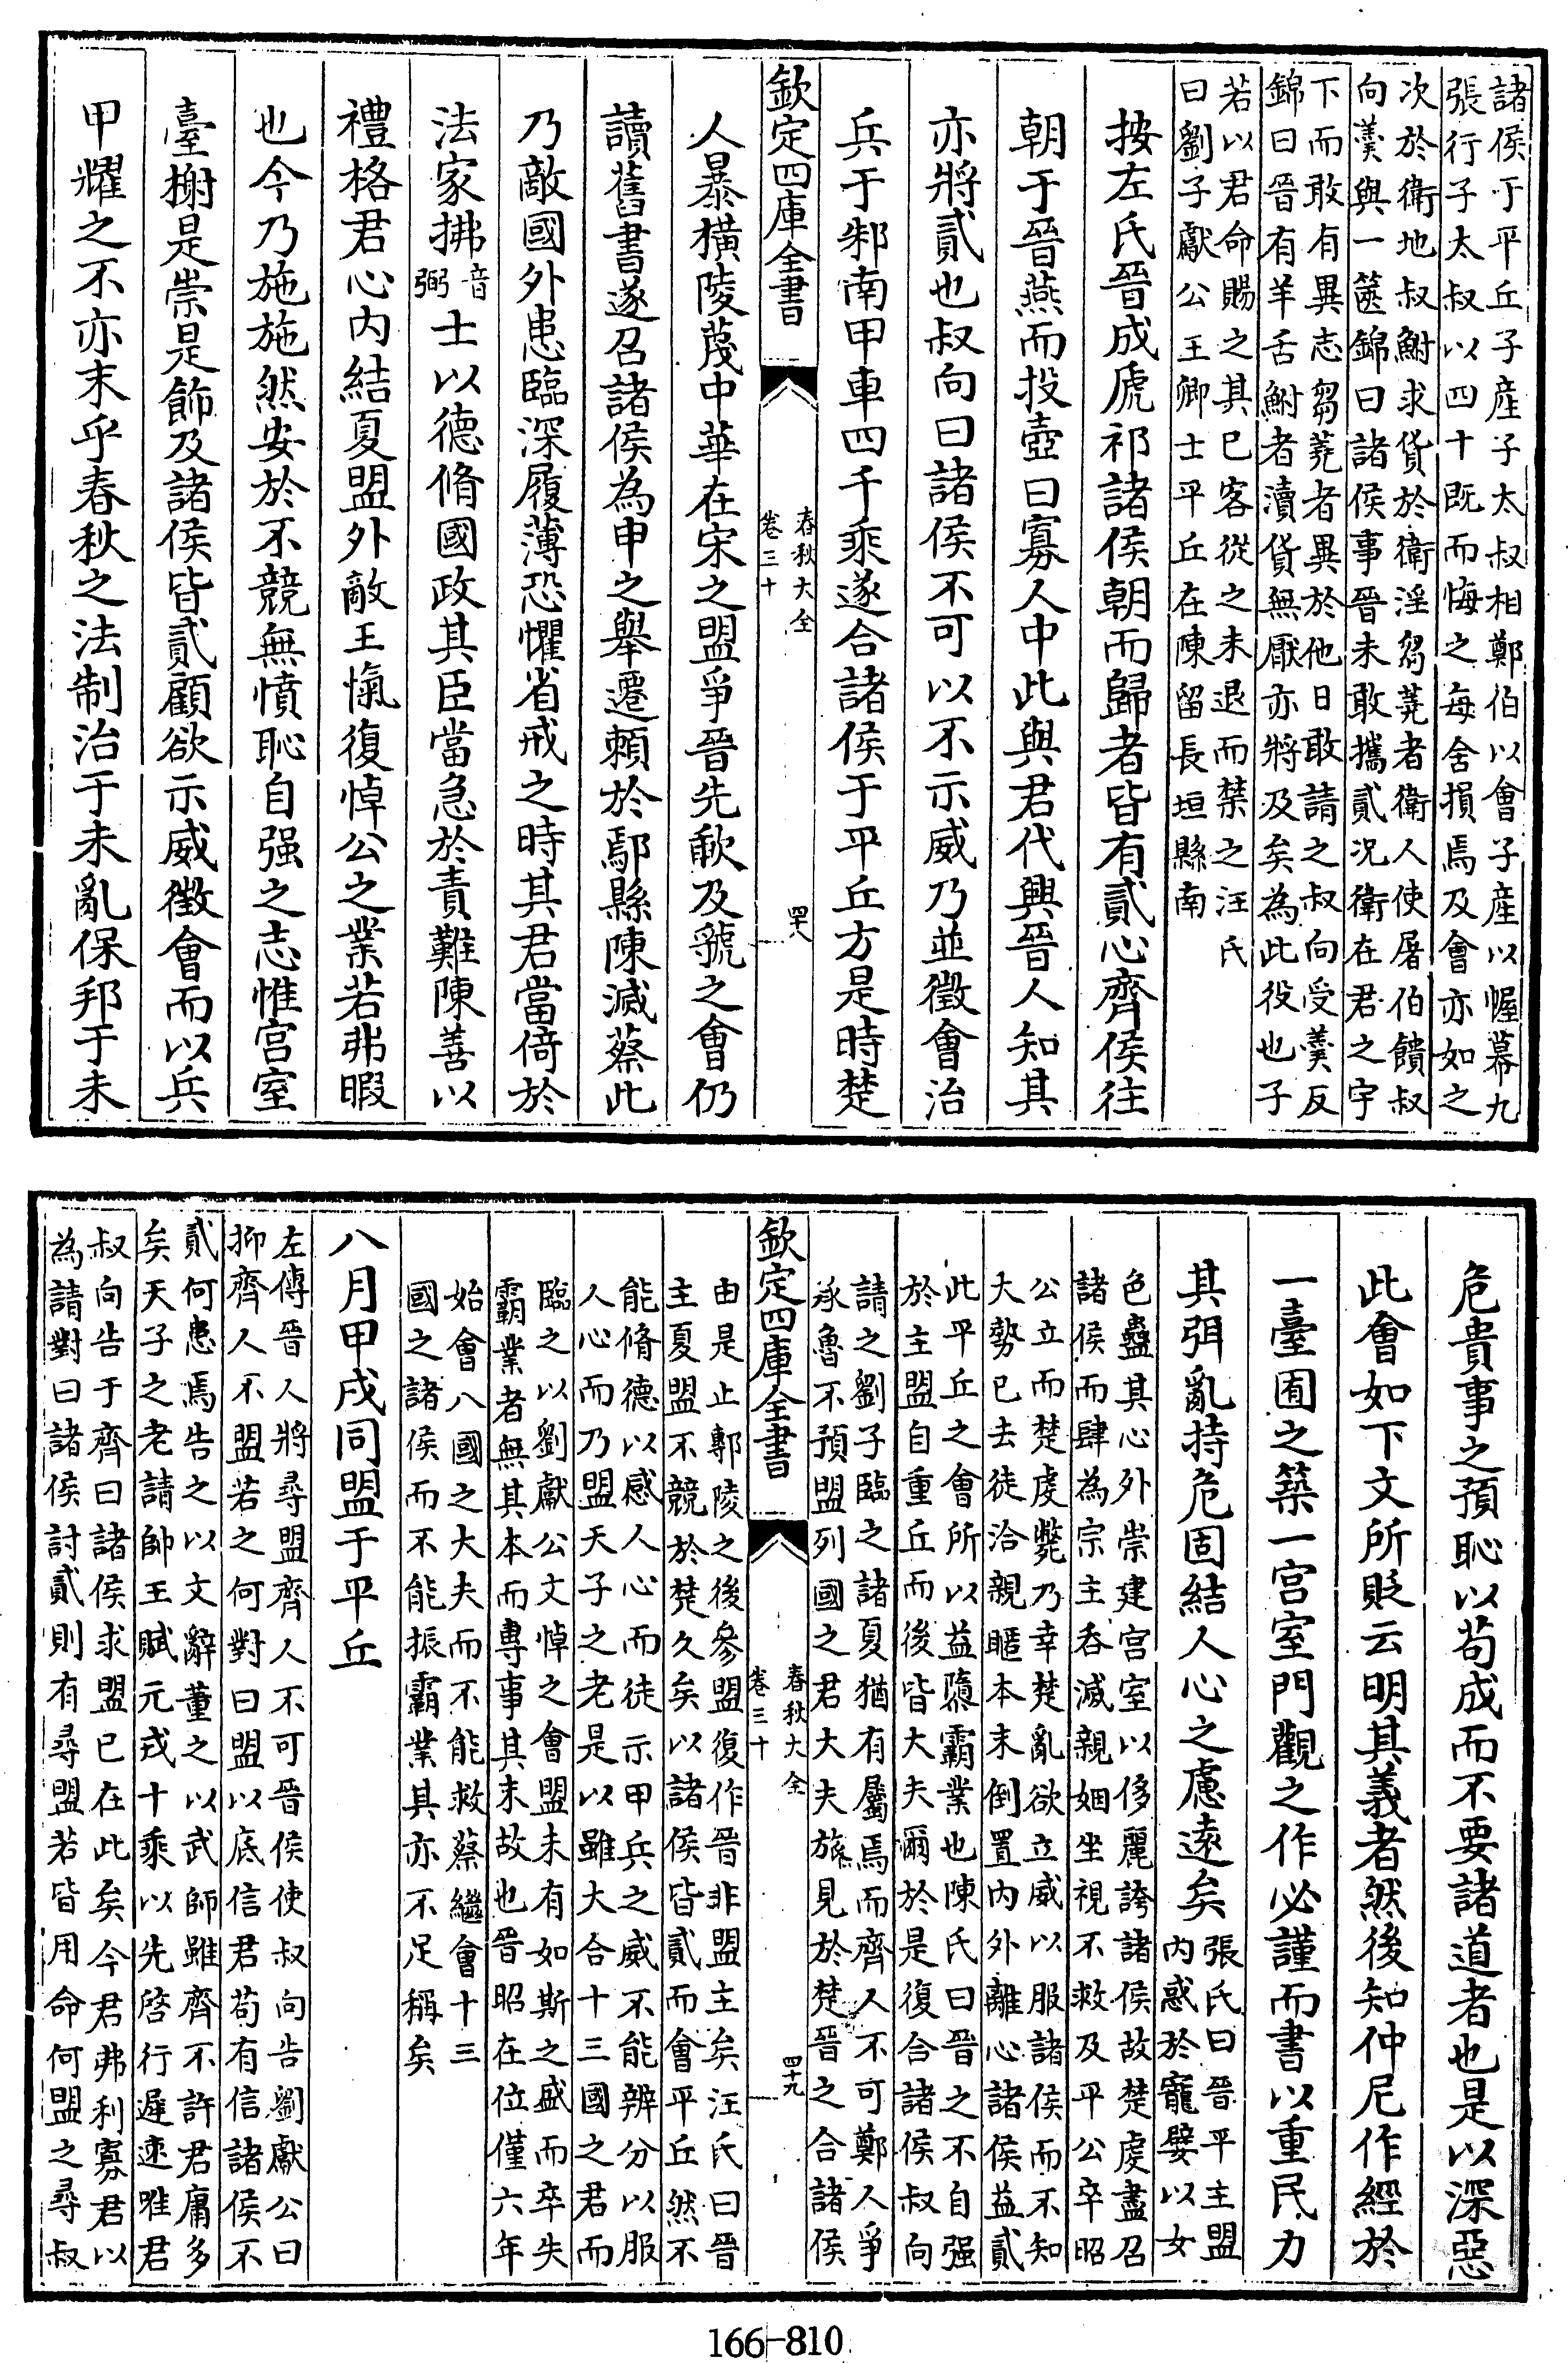 諸侯于平丘子産子太叔相鄭伯以會子産以幄幕九
張行子太叔以四十既而悔之每舍損焉及會亦如之
次於衛地叔鮒求貨於衛淫芻蕘者衛人使屠伯饋叔
向羹與一篋錦曰諸侯事晉未敢攜貳况衛在君之宇
下而敢有異志芻蕘者異於他日敢請之叔向受羹反
錦曰晉有羊舌鮒者瀆貨無厭亦將及矣為此役也子
若以君命賜之其已客從之未退而禁之汪氏
曰劉子獻公王卿士平丘在陳留長垣縣南
按左氏晉成虒祁諸侯朝而歸者皆有貳心齊侯往
朝于晉燕而投壺曰寡人中此與君代興晉人知其
亦將貳也叔向曰諸侯不可以不示威乃並徵會治
兵于邾南甲車四千乘遂合諸侯于平丘方是時楚
欽定四庫全書
春秋大全
卷三十
四十八
人暴横陵蔑中華在宋之盟爭晉先歃及虢之會仍
讀舊書遂召諸侯為申之舉遷賴於鄢縣陳滅蔡此
乃敵國外患臨深履薄恐懼省戒之時其君當倚於
法家拂音弼士以德脩國政其臣當急於責難陳善以
禮格君心内結夏盟外敵王愾復悼公之業若弗暇
也今乃施施然安於不競無憤恥自强之志惟宫室
臺榭是崇是飾及諸侯皆貳顧欲示威徵會而以兵
甲耀之不亦末乎春秋之法制治于未亂保邦于未
危貴事之預恥以苟成而不要諸道者也是以深惡
此會如下文所貶云明其義者然後知仲尼作經於
一臺囿之築一宫室門觀之作必謹而書以重民力
其弭亂持危固結人心之慮遠矣
張氏曰晉平主盟
内惑於寵嬖以女
色蠱其心外崇建宫室以侈麗誇諸侯故楚虔盡召
諸侯而肆為宗主吞滅親姻坐視不救及平公卒昭
公立而楚虔斃乃幸楚亂欲立威以服諸侯而不知
大勢已去徒洽親暱本末倒置内外離心諸侯益貳
此平丘之會所以益隳霸業也陳氏曰晉之不自强
於主盟自重丘而後皆大夫爾於是復合諸侯叔向
請之劉子臨之諸夏猶有屬焉而齊人不可鄭人爭
承魯不預盟列國之君大夫旅見於楚晉之合諸侯
欽定四庫全書
春秋大全
卷三十
四十九
由是止鄟陵之後參盟復作晉非盟主矣汪氏曰晉
主夏盟不競於楚久矣以諸侯皆貳而會平丘然不
能脩德以感人心而徒示甲兵之威不能辨分以服
人心而乃盟天子之老是以雖大合十三國之君而
臨之以劉獻公文悼之會盟未有如斯之盛而卒失
霸業者無其本而專事其末故也晉昭在位僅六年
始會八國之大夫而不能救蔡繼會十三
國之諸侯而不能振霸業其亦不足稱矣
八月甲戌同盟于平丘
左傳晉人將尋盟齊人不可晉侯使叔向告劉獻公曰
抑齊人不盟若之何對曰盟以底信君苟有信諸侯不
貳何患焉告之以文辭董之以武師雖齊不許君庸多
矣天子之老請帥王賦元戎十乘以先啓行遲速唯君
叔向告于齊曰諸侯求盟已在此矣今君弗利寡君以
為請對曰諸侯討貳則有尋盟若皆用命何盟之尋叔
166-810